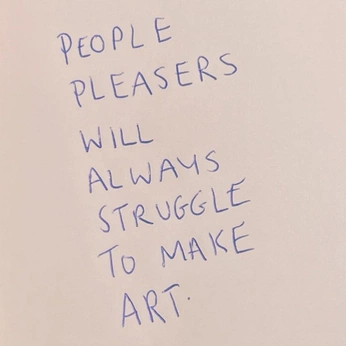 PEOPLE
PLEASERS
WILL
ALWAYS
STRUGGLE
TO MAKE
ART.